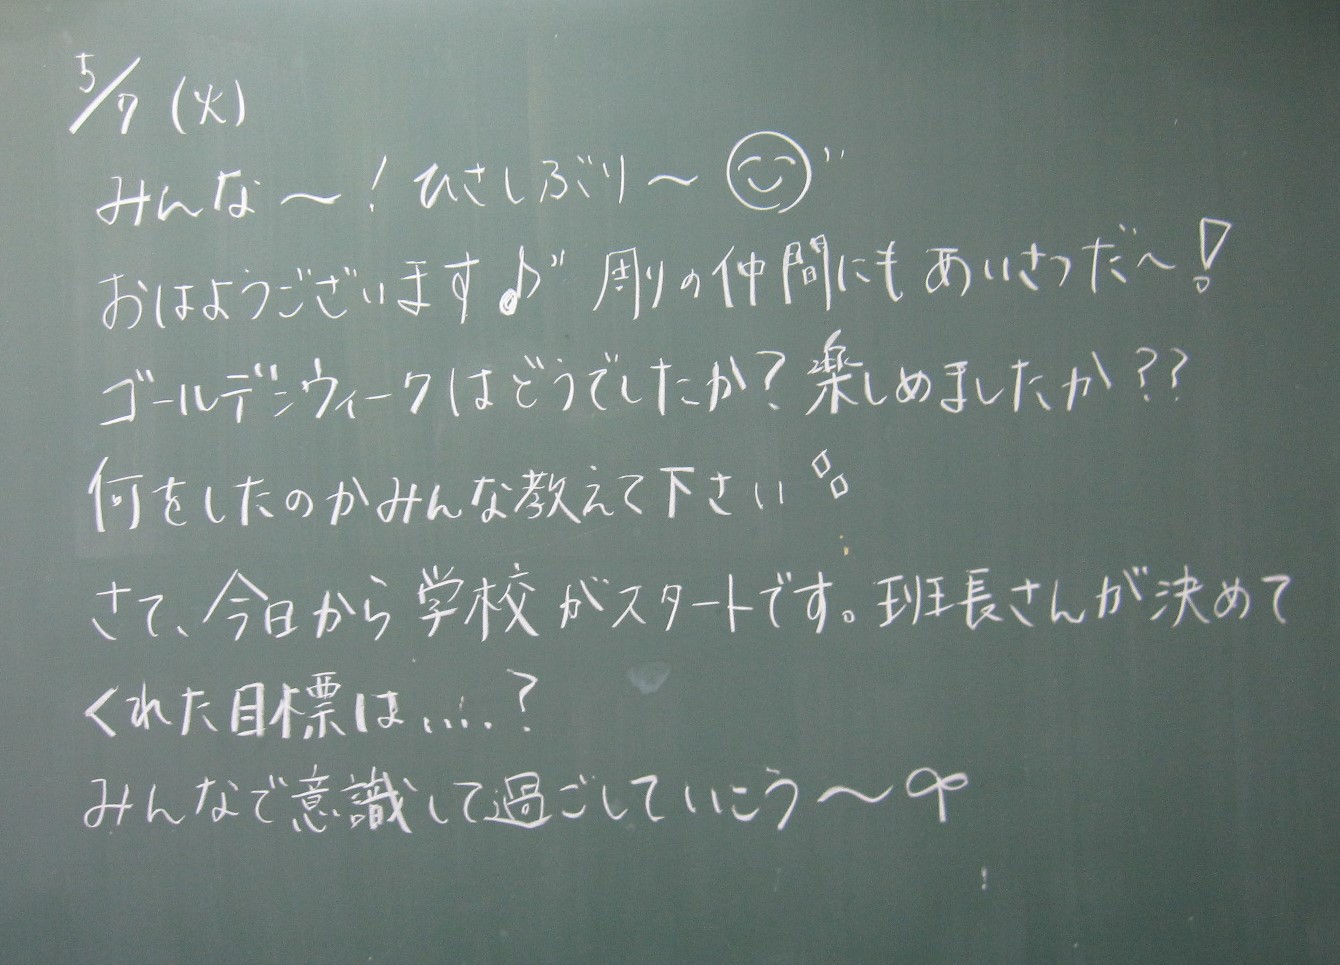 5/7(火)
みんな〜！ひさしぶり〜
おはようございます♪ 周りの仲間にもあいさつだ〜！
ゴールデンウィークはどうでしたか？楽しめましたか？？
何をしたのかみんな教えて下さい
さて、今日から学校がスタートです。班長さんが決めて
くれた目標は.....？
みんなで意識して過ごしていこう〜